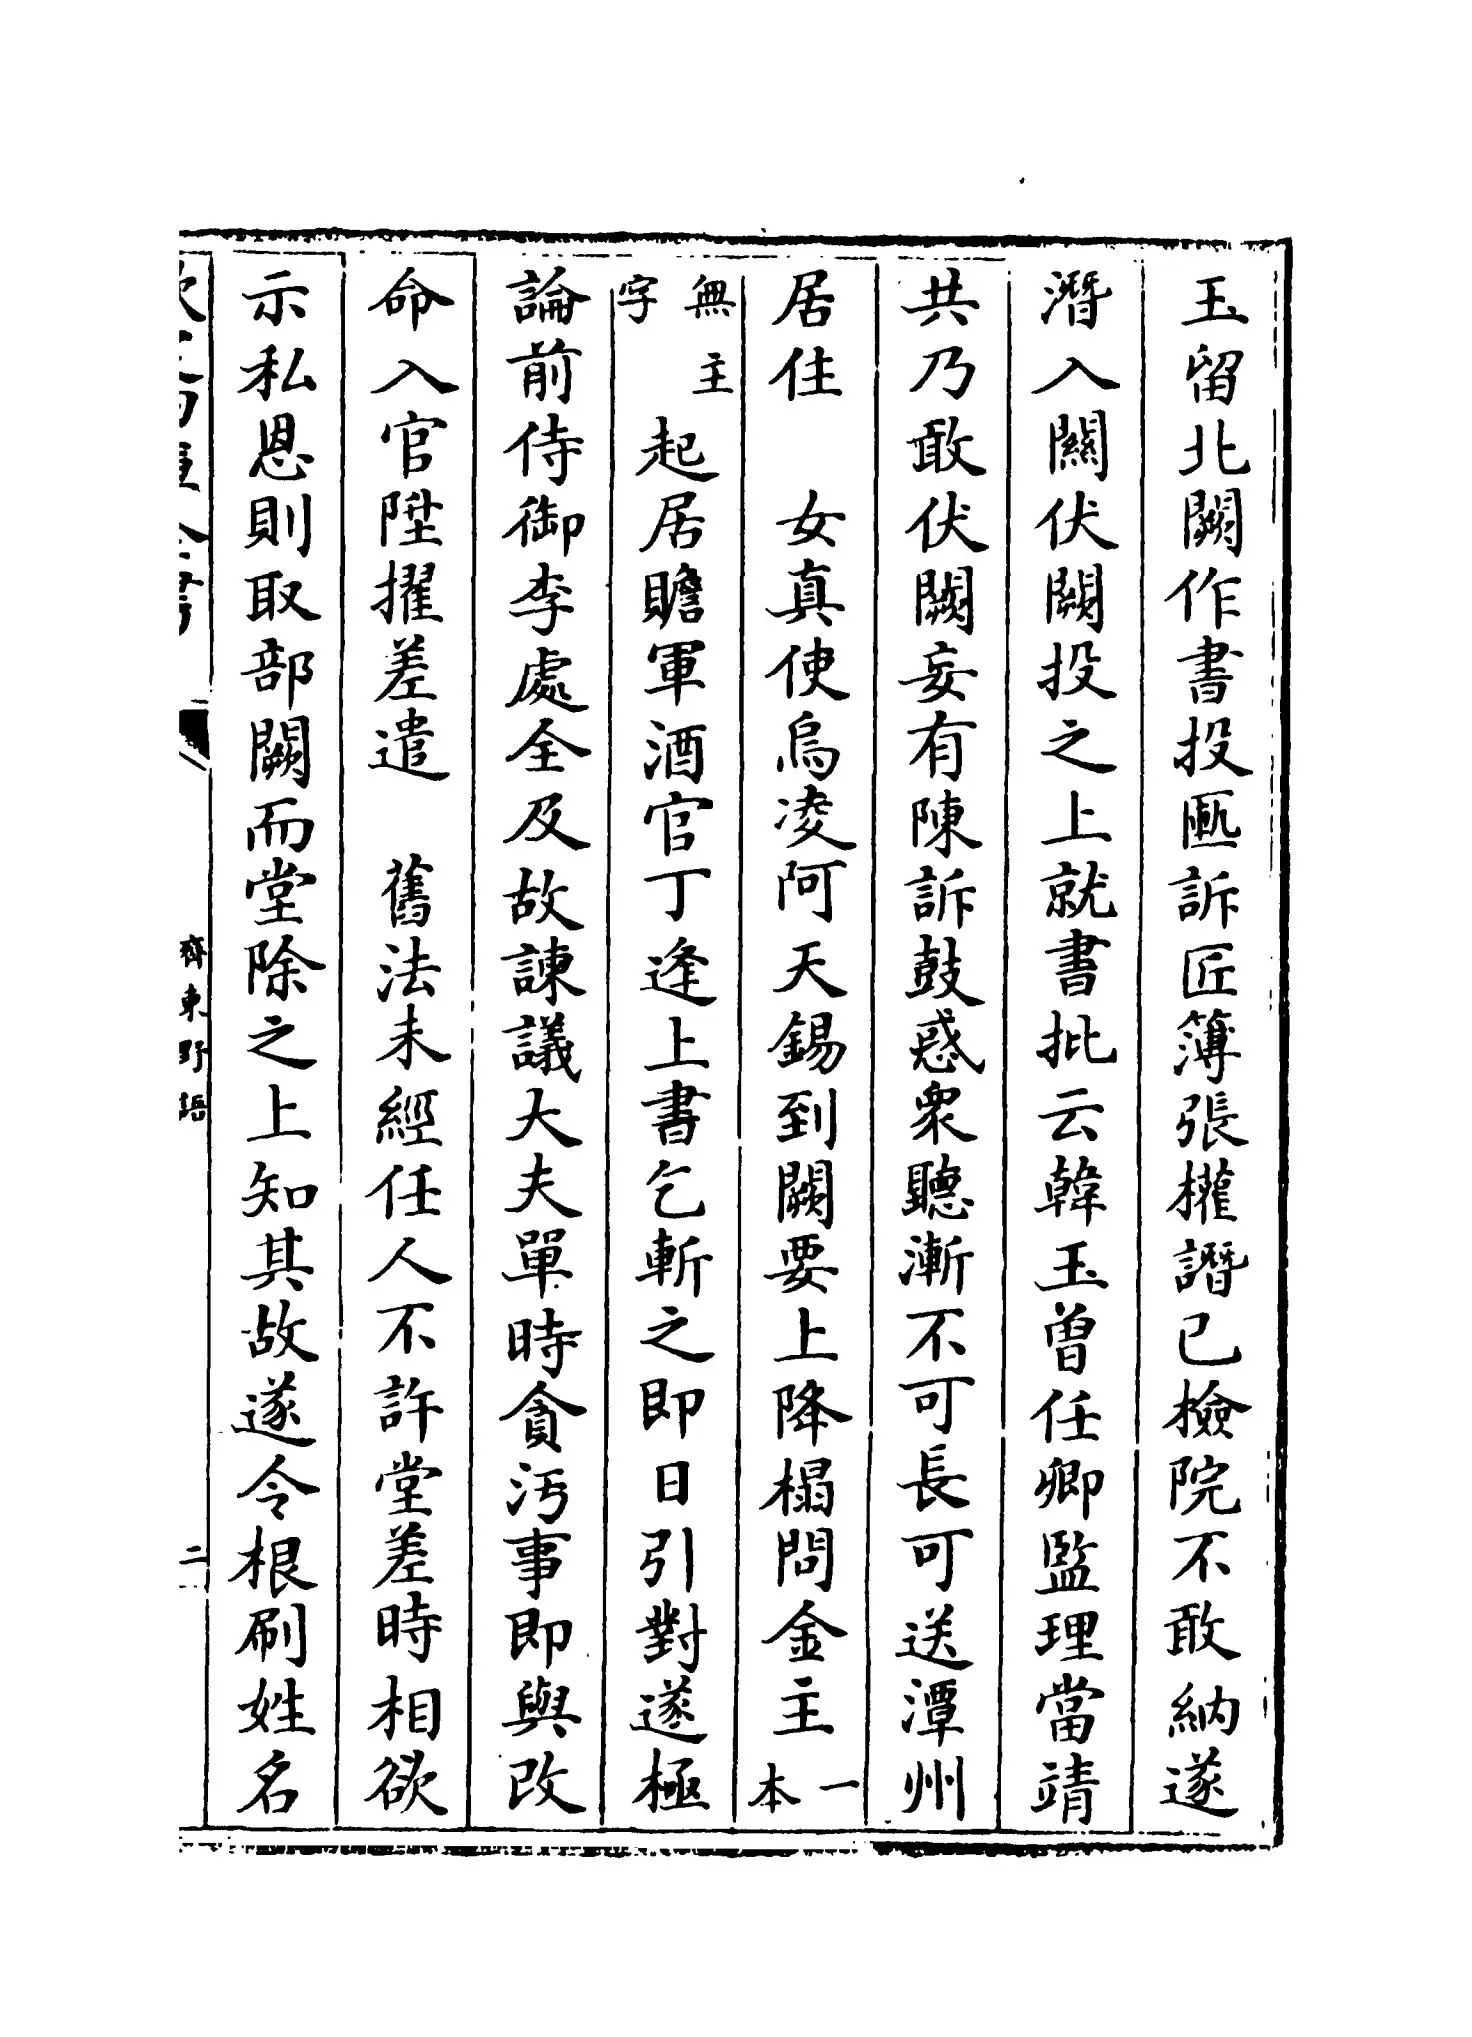 玉留北闕作書投匭訴匠簿張權譖已檢院不敢納遂
潛入闗伏闕投之上就書批云韓玉曽任卿監理當靖
共乃敢伏闕妄有陳訴鼓惑衆聽漸不可長可送潭州
居住　女真使烏凌阿天錫到闕要上降榻問金主一本
無主字起居贍軍酒官丁逢上書乞斬之即日引對遂極
論前侍御李處全及故諫議大夫單時貪汚事即與改
命入官陞擢差遣　舊法未經任人不許堂差時相欲
示私恩則取部闕而堂除之上知其故遂令根刷姓名
齊東野語
二